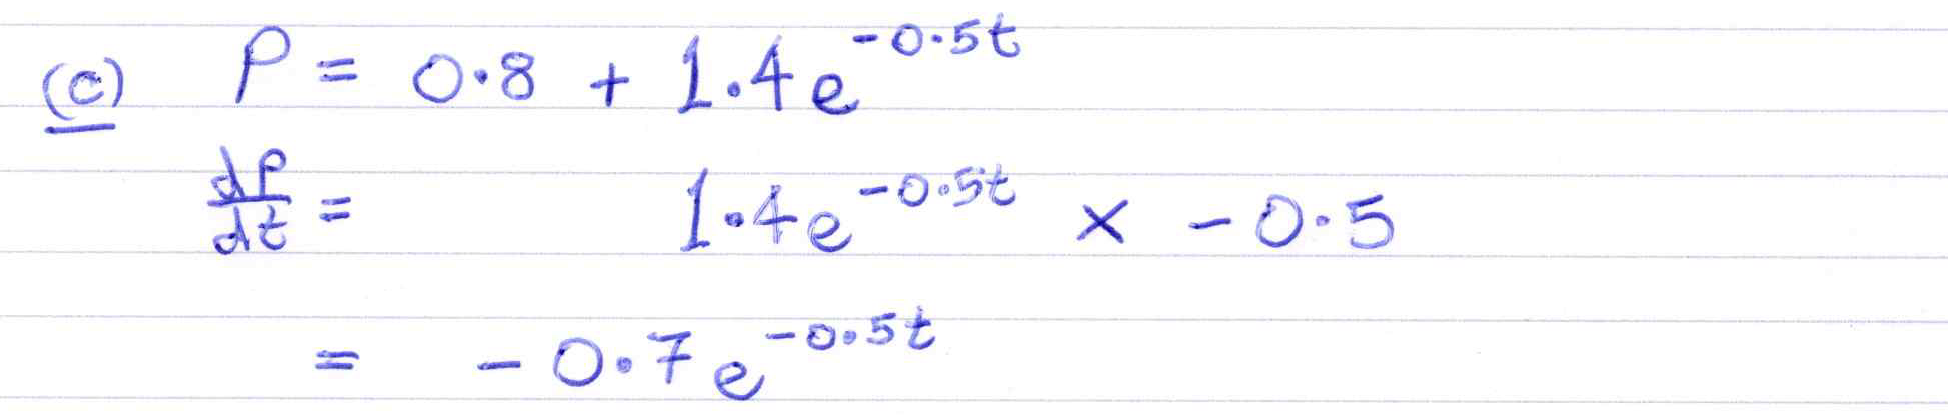 (c) P = 0.8 + 1.4e^{-0.5t}
dP/dt = 1.4e^{-0.5t} × -0.5
= -0.7e^{-0.5t}